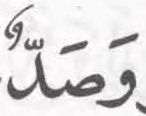 وَصَدٌّ